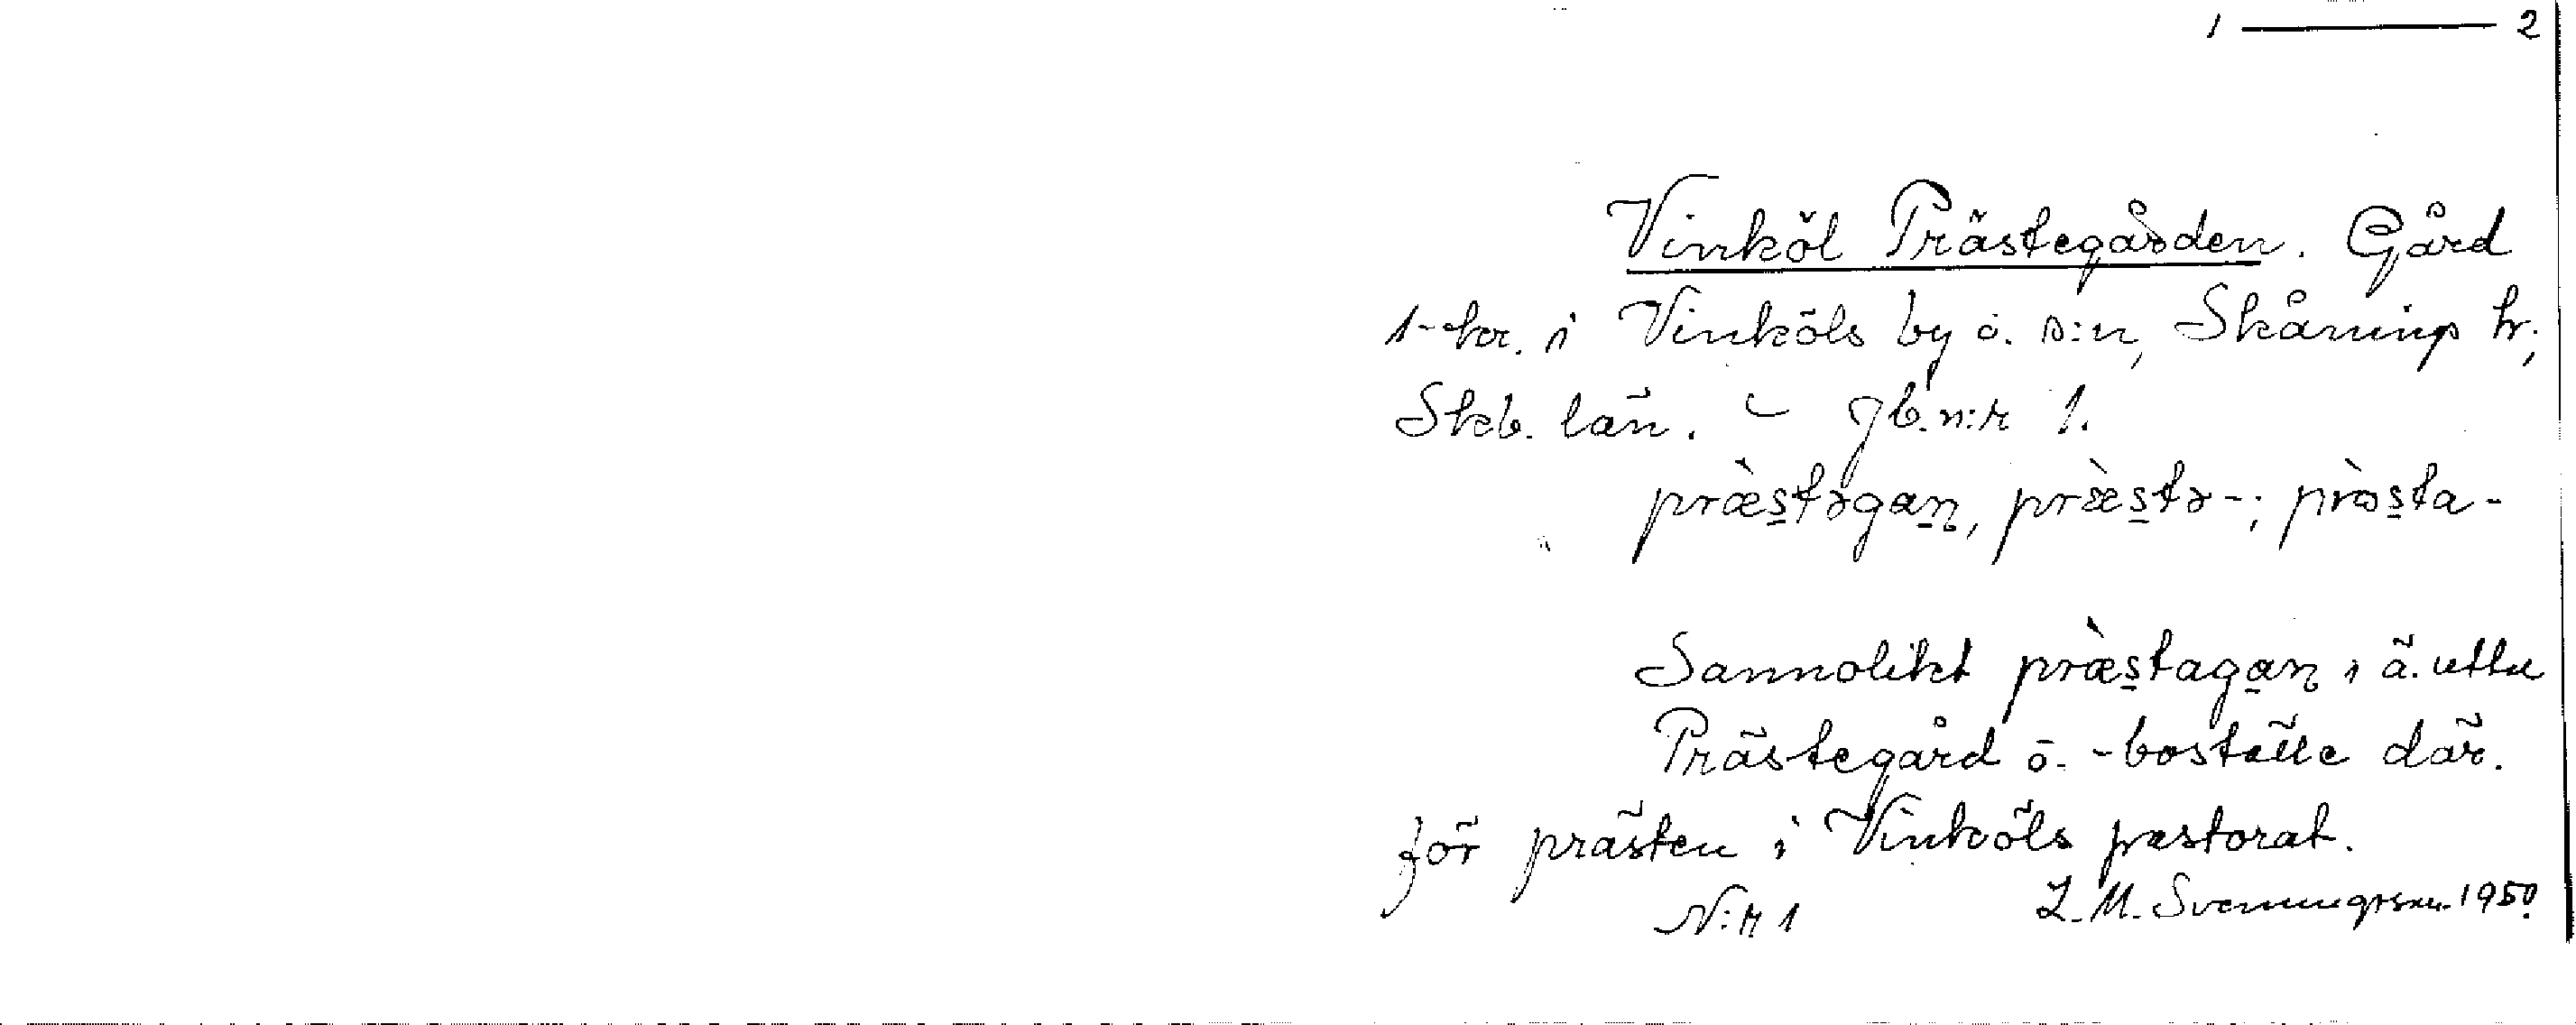 1 ——— 2
Vinköl Prästegården. Gård
1-kr. i Vinköls by o. s:n, Skånings hr;
Skb. län. – Jb.n:r 1.
præ̀stəgan, præ̀stə-; præ̀sta-
Sannolikt præ̀stagan, ä. uttu
Prästegård o. -boställe där.
för prästen i Vinköls pastorat.
N:r 1 L. M. Svenungsson. 1950.